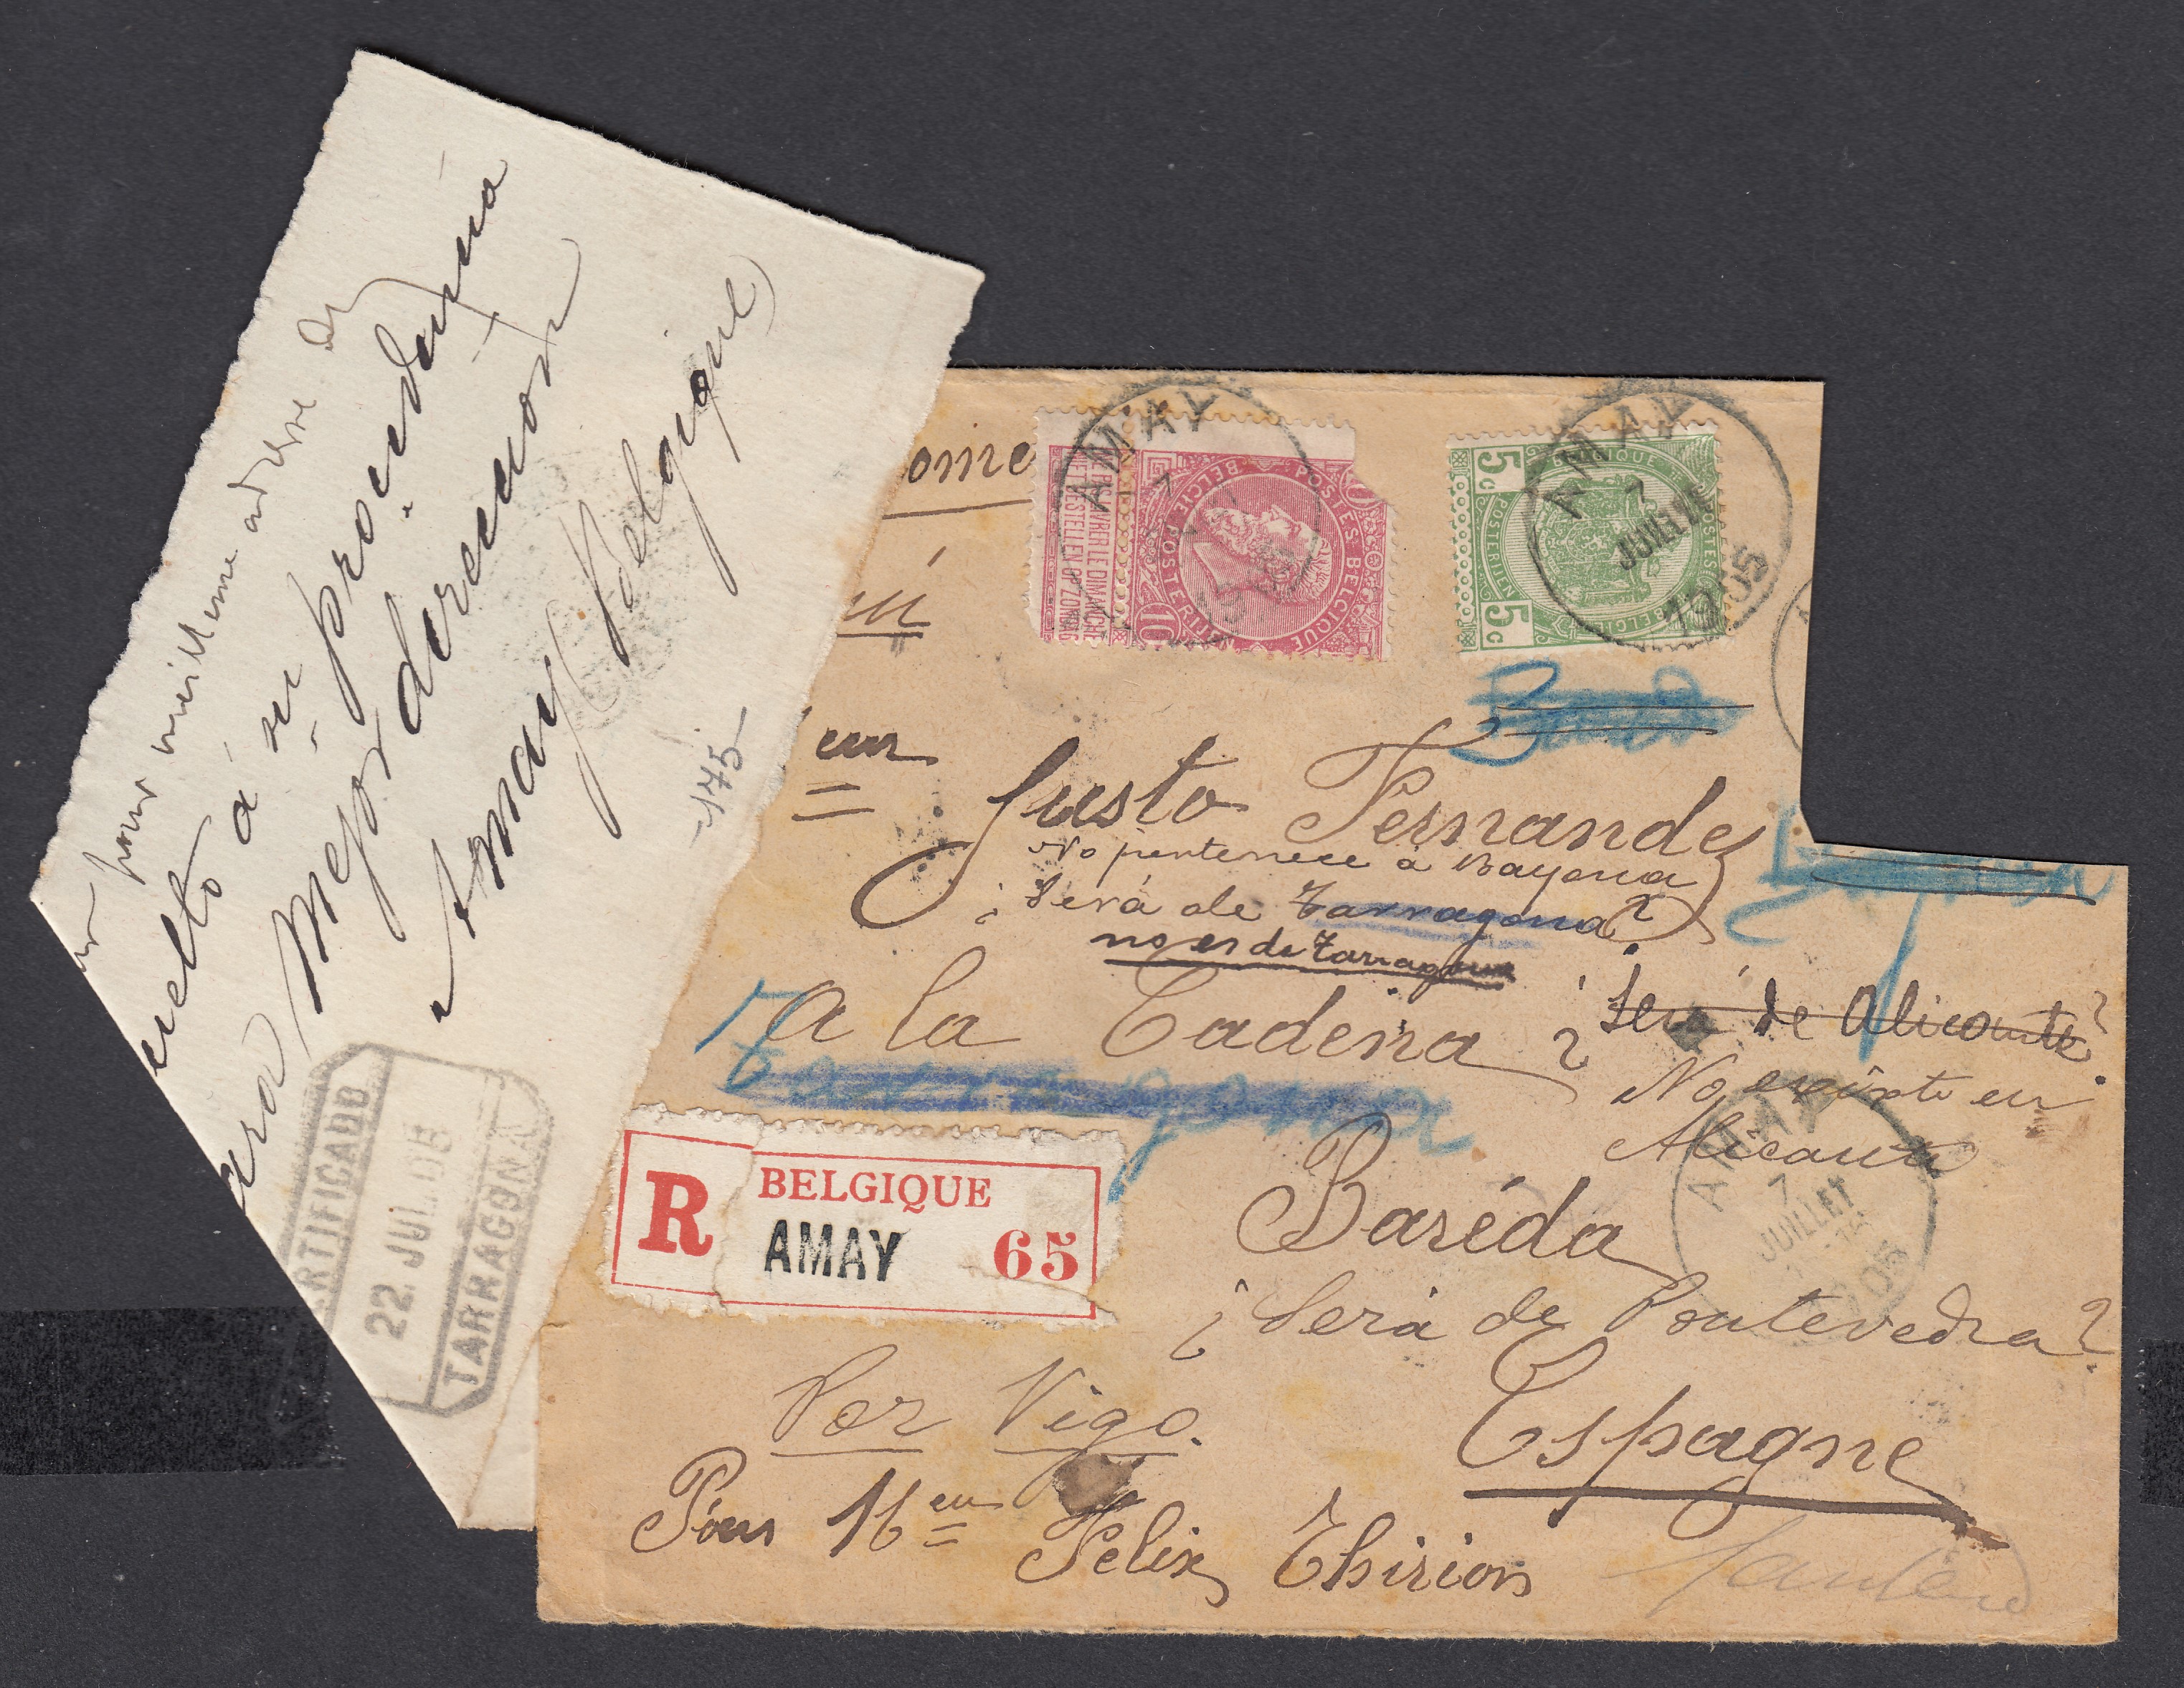 pour meilleure adresse
á su procedencia
Mejor dirección
Amay (Belgique)
175
CERTIFICADO
22. JUL. 05
TARRAGONA
POSTES BELGIQUE
BELGIE POSTERIJEN
10
NE PAS LIVRER LE DIMANCHE
NIET BESTELLEN OP ZONDAG
AMAY
7
5c
5c
BELGIQUE
POSTERIJEN
POSTES
BELGIE
AMAY
7
JUILLET
1905
eur
Justo Fernandez
No pertenece á Bayona
¿Será de Tarragona?
no es de Tarragona
a la Cadena
¿Será de Alicante?
No existe en
Alicante
Tarragona
R
BELGIQUE
AMAY
65
Baréda
AMAY
7
JUILLET
1905
¿Será de Pontevedra?
Por Vigo.
Espagne
Pour Meur Felix Thirion